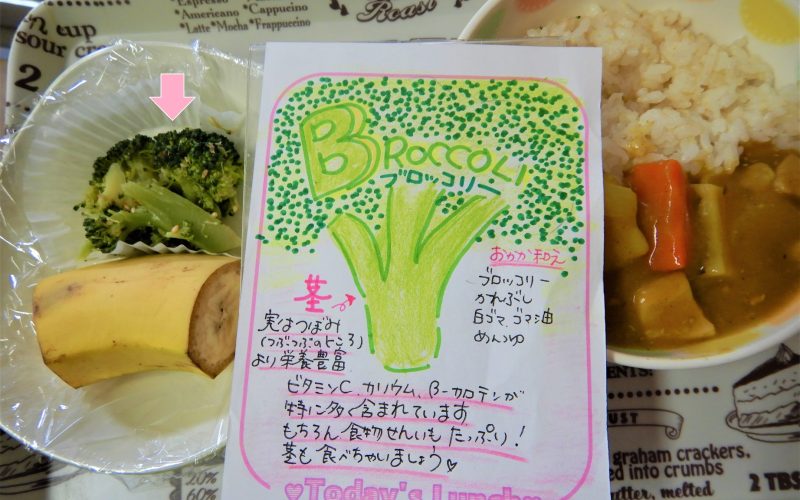 n cup
sour cr
2
*Espresso
*Americano *Cappucino
*Latte*Mocha*Frappucino
Roast
BROCCOLI
ブロッコリー
おかか和え
ブロッコリー
かれぶし
白ゴマ、ゴマ油
めんつゆ
茎
実はつぼみ
(つぶつぶのところ)
より栄養豊富
ビタミンC、カリウム、β-カロテンが
特に多く含まれています
もちろん、食物せんいもたっぷり!
茎も食べちゃいましょう♡
♥Today's Lunch♥
20%
60%
ENTS!
UST
graham crackers,
ed into crumbs
tter, melted
2 TBS